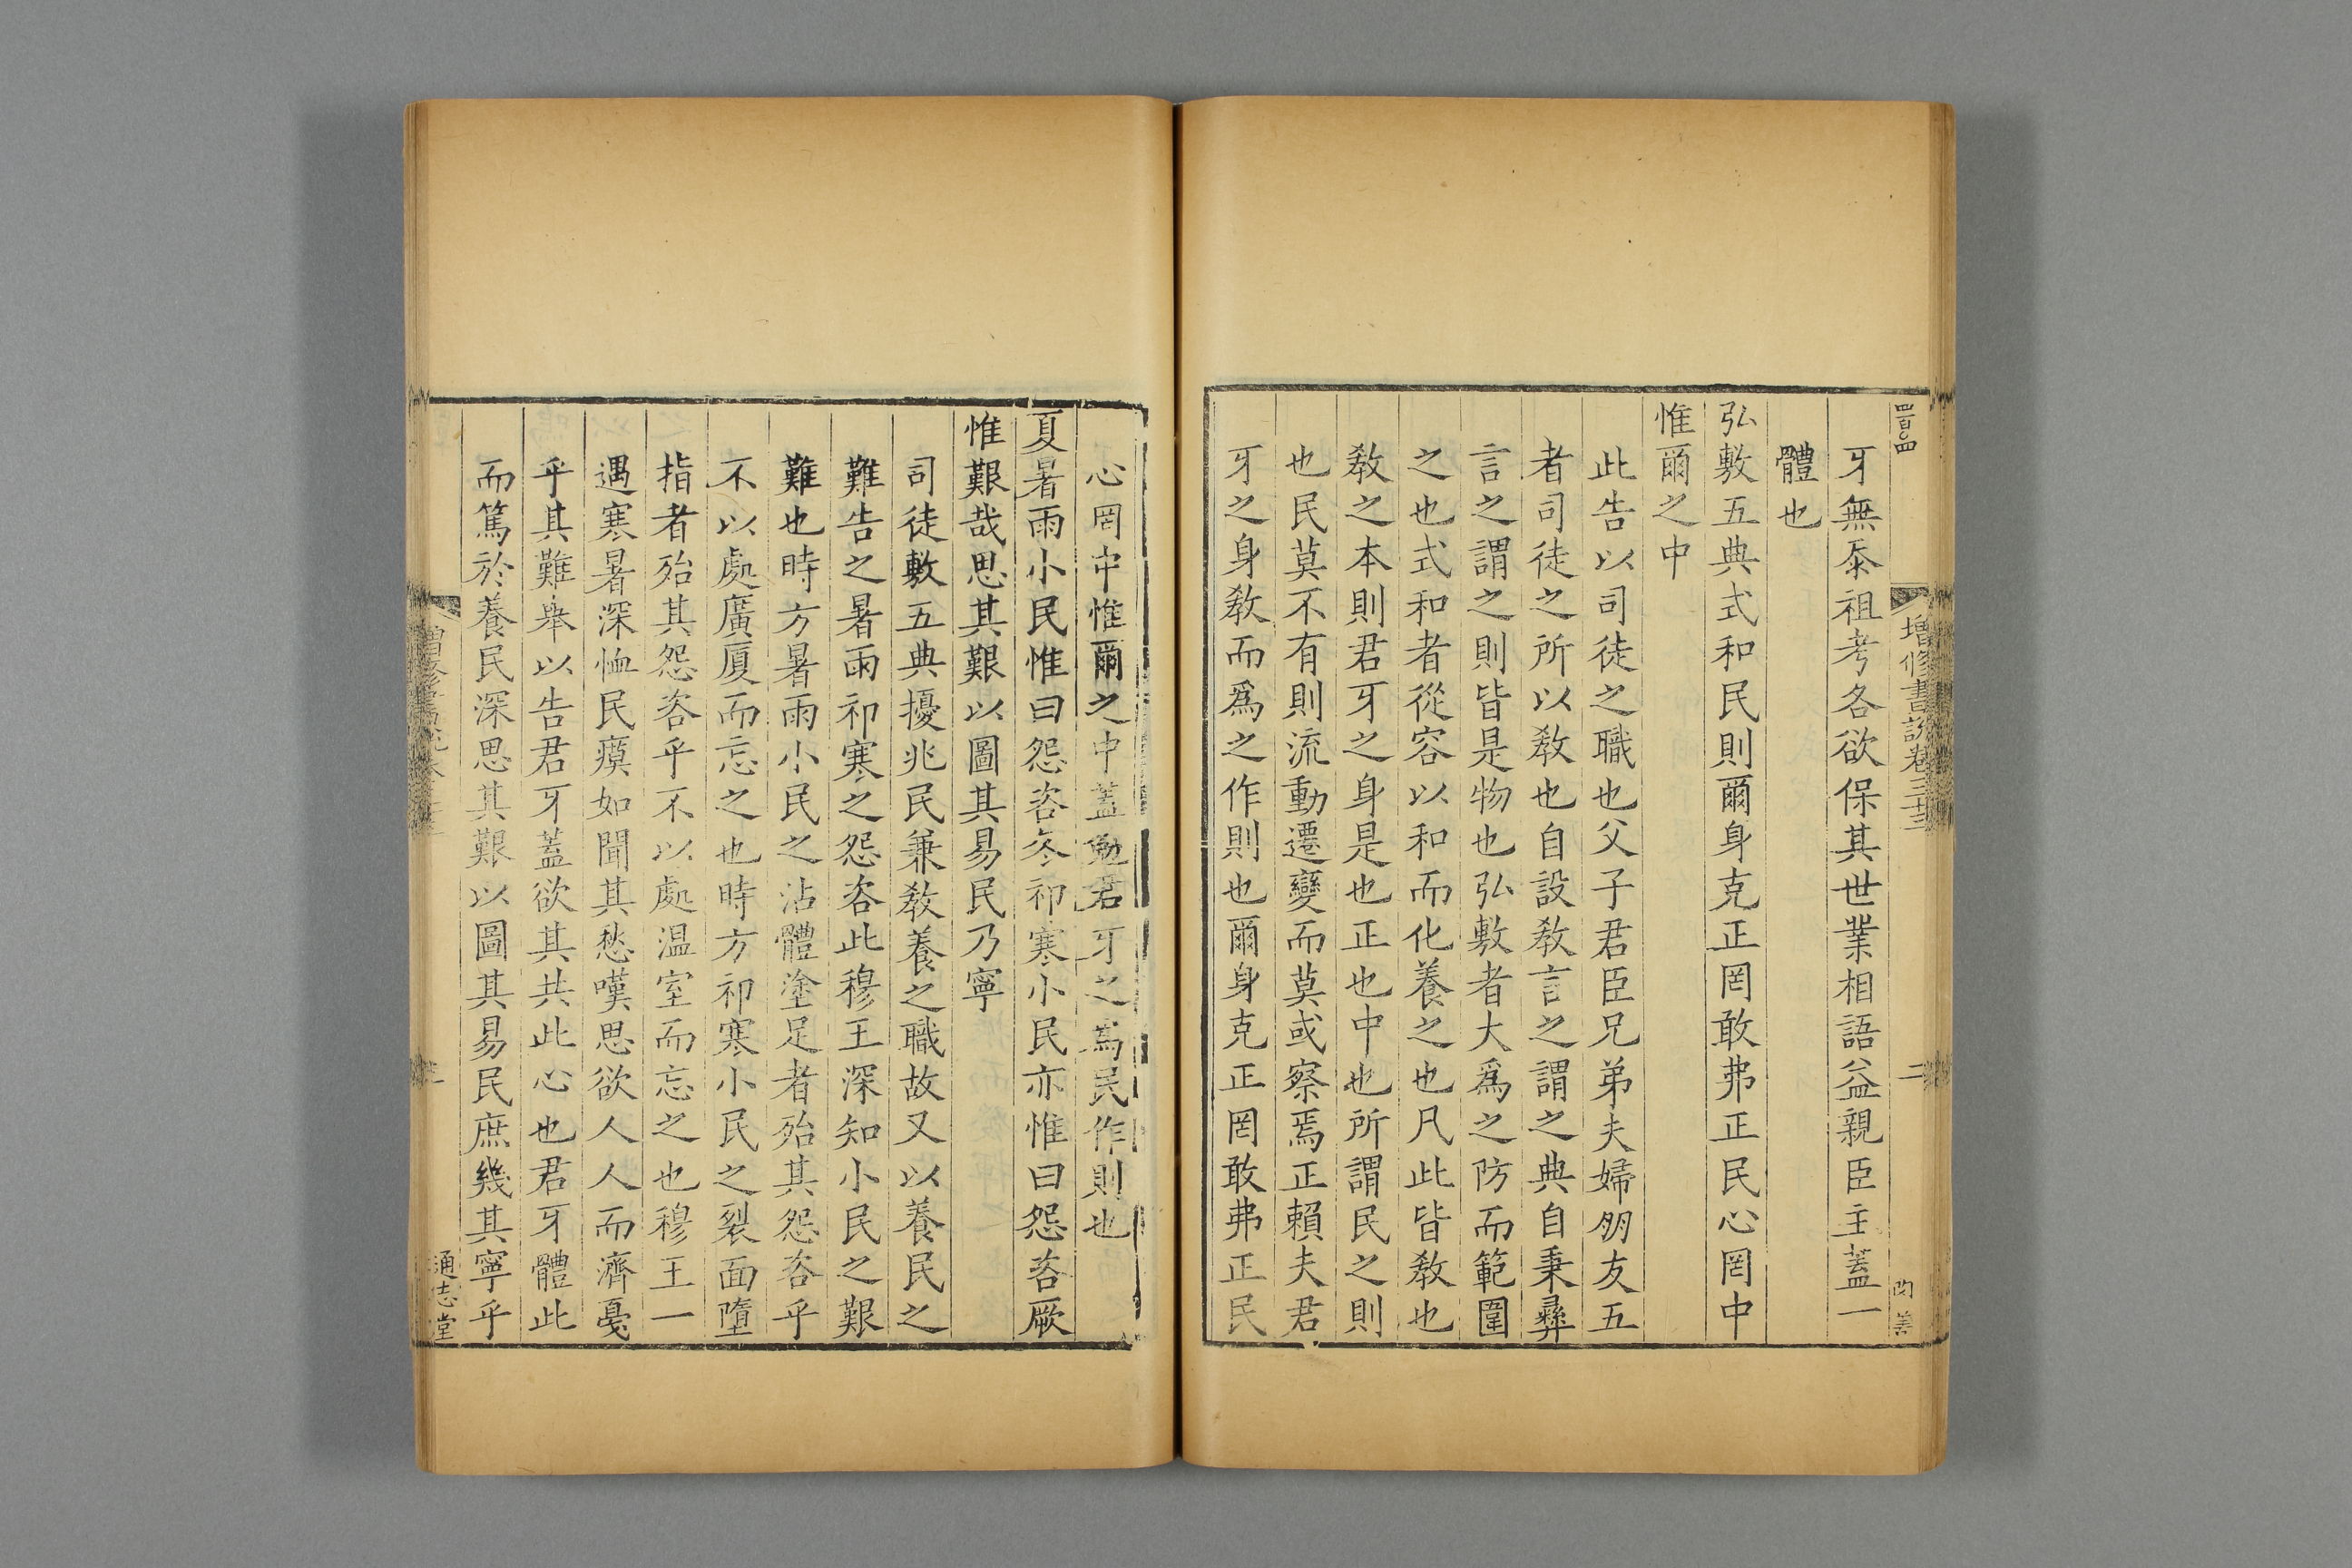 增修書說卷三十三
二
牙無忝祖考各欲保其世業相語益親臣主蓋一
體也
弘敷五典式和民則爾身克正罔敢弗正民心罔中
惟爾之中
此告以司徒之職也父子君臣兄弟夫婦朋友五
者司徒之所以敎也自設敎言之謂之典自秉彞
言之謂之則皆是物也弘敷者大爲之防而範圍
之也式和者從容以和而化養之也凡此皆敎也
敎之本則君牙之身是也正也中也所謂民之則
也民莫不有則流動遷變而莫或察焉正賴夫君
牙之身敎而爲之作則也爾身克正罔敢弗正民
心罔中惟爾之中蓋勉君牙之爲民作則也
夏暑雨小民惟曰怨咨冬祁寒小民亦惟曰怨咨厥
惟艱哉思其艱以圖其易民乃寧
司徒敷五典擾兆民兼敎養之職故又以養民之
難告之暑雨祁寒之怨咨此穆王深知小民之艱
難也時方暑雨小民之沾體塗足者殆其怨咨乎
不以處廣厦而忘之也時方祁寒小民之裂面墮
指者殆其怨咨乎不以處温室而忘之也穆王一
遇寒暑深恤民瘼如聞其愁嘆思欲人人而濟憂
乎其難舉以告君牙蓋欲其共此心也君牙體此
而篤於養民深思其艱以圖其易民庶幾其寧乎
通志堂